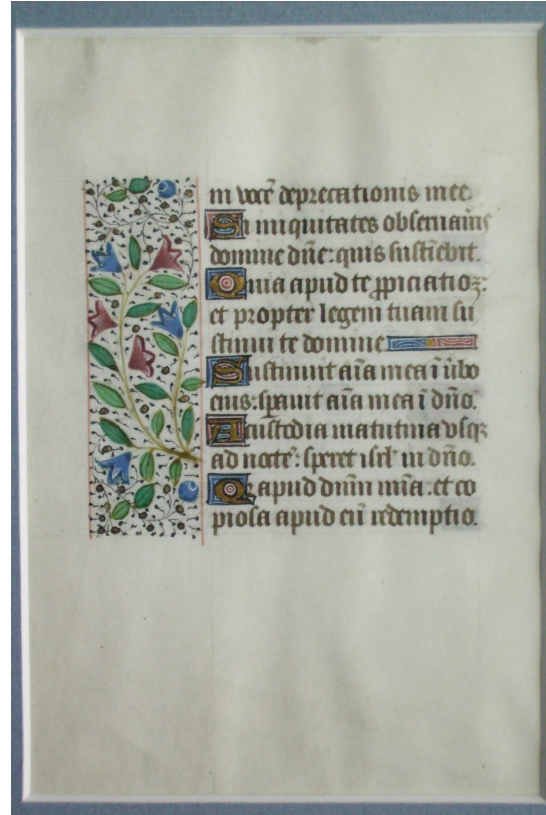 in vocē deprecationis mee.
Si iniquitates obseruauīs
domine dñe: quis sustiēbit.
Quia apud te ꝓpiciatioꝫ:
et propter legem tuam su
stinui te domine
Sustinuit aīa mea ī ūbo
eius: sꝑauit aīa mea ī dño.
A custodia matutina vsqꝫ
ad noctē: speret isrl' in dño.
Qꝛ apud dnm mīa: et co
piosa apud eū redemptio.